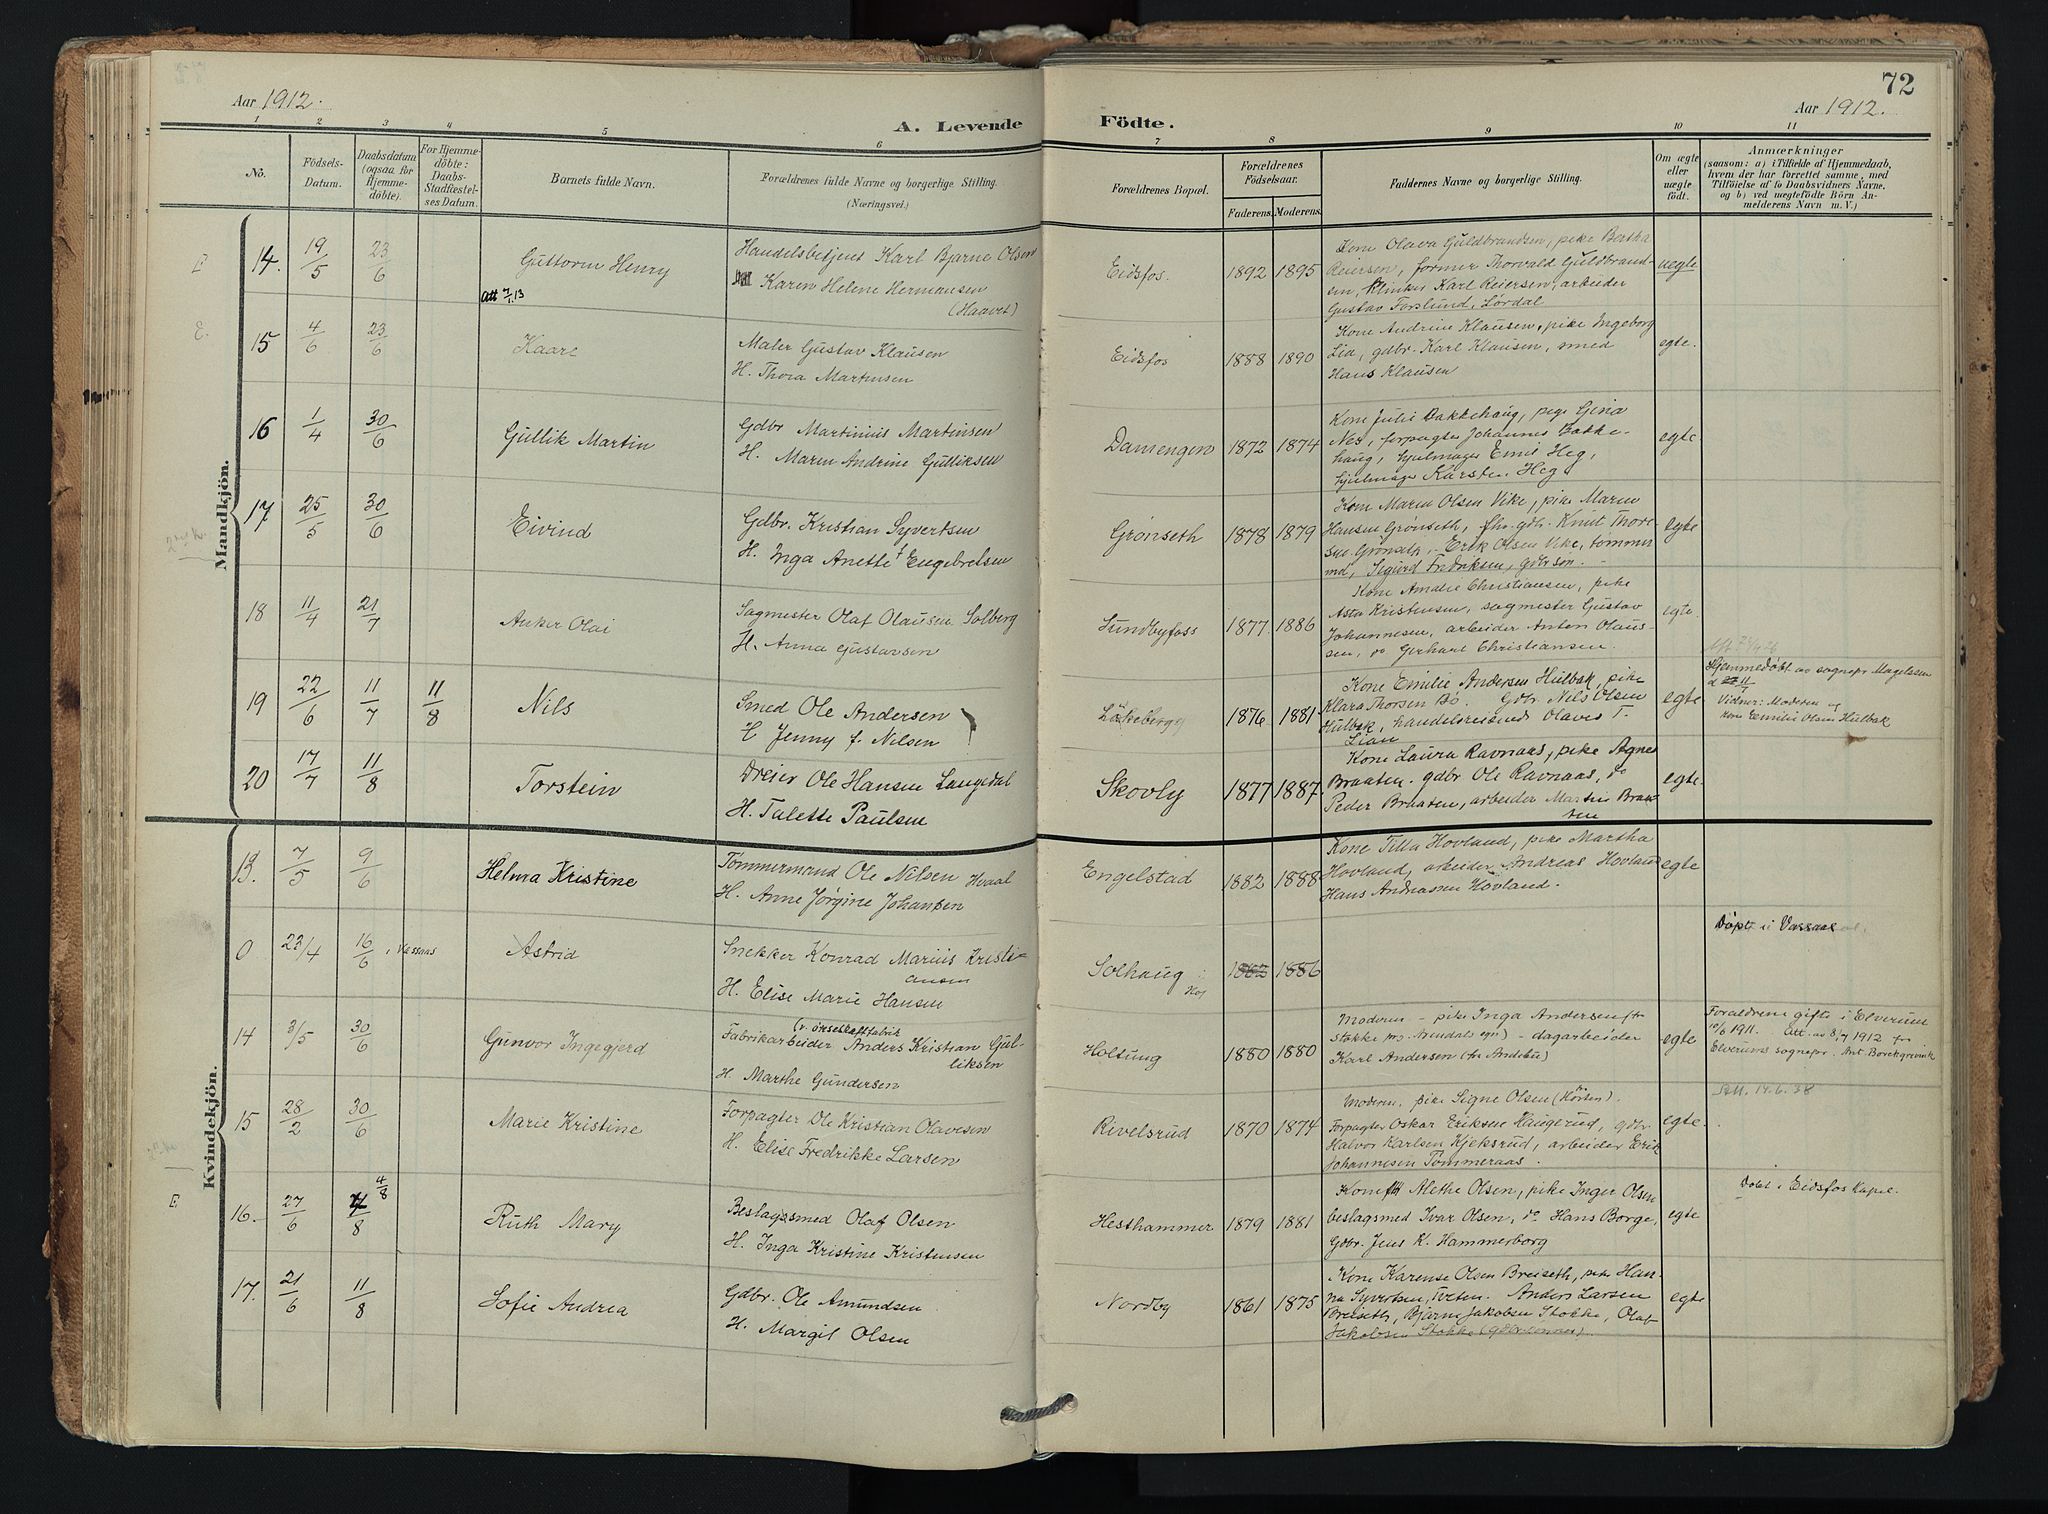 72
Aar 1912.
Aar 1912.
A. Levende
Födte.
1 2 3 4 5 6
7 8 9 10 11
No.
Födsels-Datum.
Daabsdatum (ogsaa for Hjemme-döbte).
For Hjemme-döbte: Daabs-Stadfæstel-ses Datum.
Barnets fulde Navn.
Forældrenes fulde Navne og borgerlige Stilling.
(Næringsvei.)
Forældrenes Bopæl.
Forældrenes Födselsaar.
Faderens. Moderens.
Faddernes Navne og borgerlige Stilling.
Om ægte eller uægte födt.
Anmærkninger
(saasom: a) i Tilfælde af Hjemmedaab,
hvem der har forrettet samme, med
Tilföielse af to Daabsvidners Navne,
og b) ved uegtefödte Börn An-
melderens Navn m. V.)
Mandkjön.
E 14. 19/5 23/6 Guttorm Henry
Att 7/1.13
Handelsbetjent Karl Bjarne Olsen
Karen Helene Hermansen
(Haavet)
Eidsfos. 1892 1895
Kone Olava Guldbrandsen, pike Bertha
Reiersen, former Thorvald Guldbrand-
sen, Klinker Karl Reiersen, arbeider
Gustav Forslund, Lørdal
uegte
E. 15 4/6 23/6 Kaare
Maler Gustav Klausen
H. Thora Martinsen
Eidsfos 1888 1890
Kone Andrine Klausen, pike Ingeborg
Lia, gdbr. Karl Klausen, smed
Hans Klausen
egte.
16 1/4 30/6 Gullik Martin
Gdbr Martinius Martinsen
H. Maren Andrine Gulliksen
Damengen 1872 1874
Kone Julie Bakkehaug, pige Gina
Nes, forpagter Johannes Bakke-
haug, hjulmager Emil Heg,
hjulmager Karsten Heg
egte
17 25/5 30/6 Eivind
Gdbr. Kristian Syvertsen
H. Inga Anette Engebretsen
Grønseth 1878 1879
Kone Maren Olsen Vike, pike Maren
Hansen Grønseth, fhv. gdbr. Knut Thore-
sen Grønseth, Erik Olsen Vike, tømmer
md, Sigurd Fredriksen, gdbrsøn.
egte
18 11/4 21/7 Anker Olai
Sagmester Olaf Olausen Solberg
H. Anna Gustavsen
Sundbyfoss 1877 1886
Kone Amalie Christiansen, pike
Asta Kristensen, sagmester Gustav
Johannesen, arbeider Anton Olaus-
sen, do Gerhart Christiansen.
egte.
19 22/6 11/7 11/8 Nils
Smed Ole Andersen
H Jenny f. Nilsen
Løkeberg 1876 1881
Kone Emilie Andersen Hulbak, pike
Klara Thorsen Bö. Gdbr. Nils Olsen
Hulbak, handelsreisende Olaves T.
Lian
egte
Hjemmedøbt av sognepr Magelssen
d 11/7
Vidner: Moderen og
kone Emilie Olsen Hulbak
20 17/7 11/8 Torstein
Dreier Ole Hansen Langedal
H. Talette Paulsen
Skovly 1877 1887.
Kone Laura Ravnaas, pike Agnes
Braaten. gdbr Ole Ravnaas, do
Peder Braaten, arbeider Martin Braa-
ten
egte
Kvindekjön.
13. 7/5 9/6 Helma Kristine
Tømmermand Ole Nilsen Hvaal
H. Anne Jørgine Johansen
Engelstad 1882 1888
Kone Tilla Hovland, pike Martha
Hovland, arbeider Andreas Hovland
Hans Andreassen Hovland.
egte
0 23/4 16/6 i Vassaas Astrid
Snekker Konrad Marius Kristi-
ansen
H. Elise Marie Hansen
Solhaug 1882 1886
Døpt i Vassaas
14 3/5 30/6 Gunvor Ingegjerd
(v. ørseskaftfabrik
Fabrikarbeider Anders Kristian Gul-
liksen
H. Marthe Gundersen
Holtung 1880 1880
Moderen – pike Inga Andersen fr
Stokke – dagarbeider
Karl Andersen (fr Andebu)
egte
Forældrene gifte i Elverum
10/6 1911. Att. av 8/7 1912 fr
Elverums sognepr.
15 28/2 30/6 Marie Kristine
Forpagter Ole Kristian Olavesen
H. Elise Fredrikke Larsen
Rivelsrud 1870 1874
Moderen, pike Signe Olsen (Horten).
Forpagter Oskar Eriksen Haugerud, gdbr.
Halvor Karlsen Kjeksrud, arbeider Erik
Johannesen Tömmeraas.
egte.
Att. 14.6.38
E 16. 27/6 4/8 Ruth Mary
Beslagsmed Olaf Olsen
H. Inga Kristine Kristensen
Hesthammer 1879 1881
Kone Alethe Olsen, pike Inger Olsen
beslagsmed Ivar Olsen, do Hans Borge,
Gdbr. Jens K. Hammerborg
egte
Døbt i Eidsfos Kapel.
17. 21/6 11/8 Sofie Andrea
Gdbr. Ole Amundsen
H. Margit Olsen
Nordby 1861 1875
Kone Karense Olsen Breiseth, pike Han-
na Syvertsen, Tveten. Anders Larsen
Breiseth, Bjarne Jakobsen Stokke, Olaf
Jakobsen Stokke (gdbrsønner).
egte